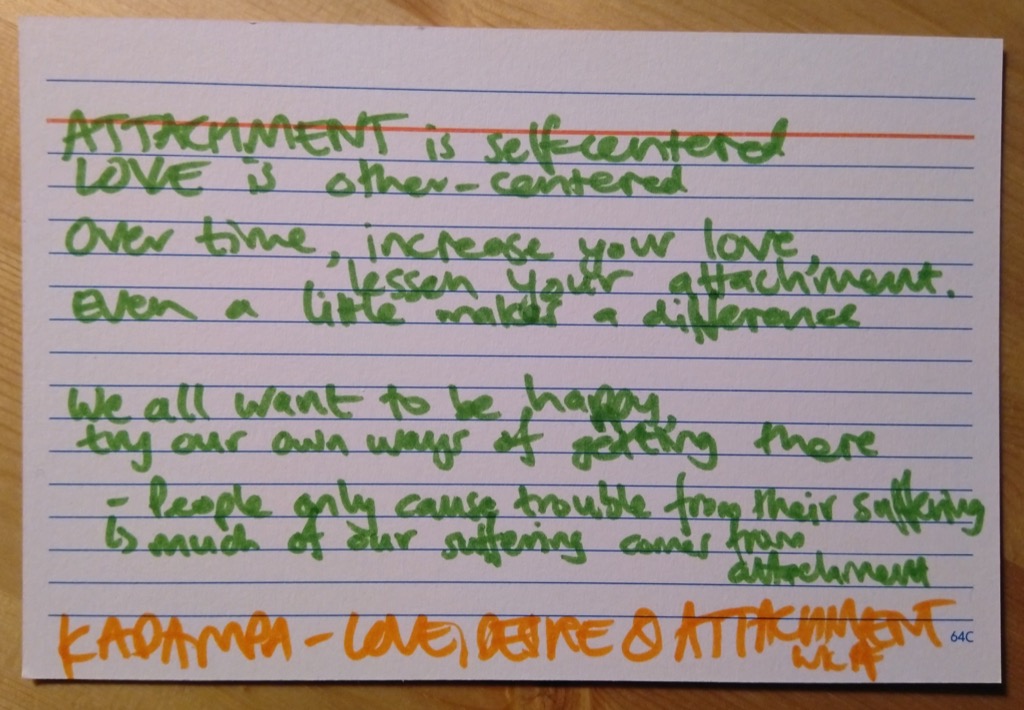 ATTACHMENT is self-centered
LOVE is other-centered
Over time, increase your love,
lessen your attachment.
Even a little makes a difference
We all want to be happy,
try our own ways of getting there
- People only cause trouble from their suffering
↳ much of our suffering comes from
attachment
KADAMPA - LOVE, DESIRE & ATTACHMENT
64C